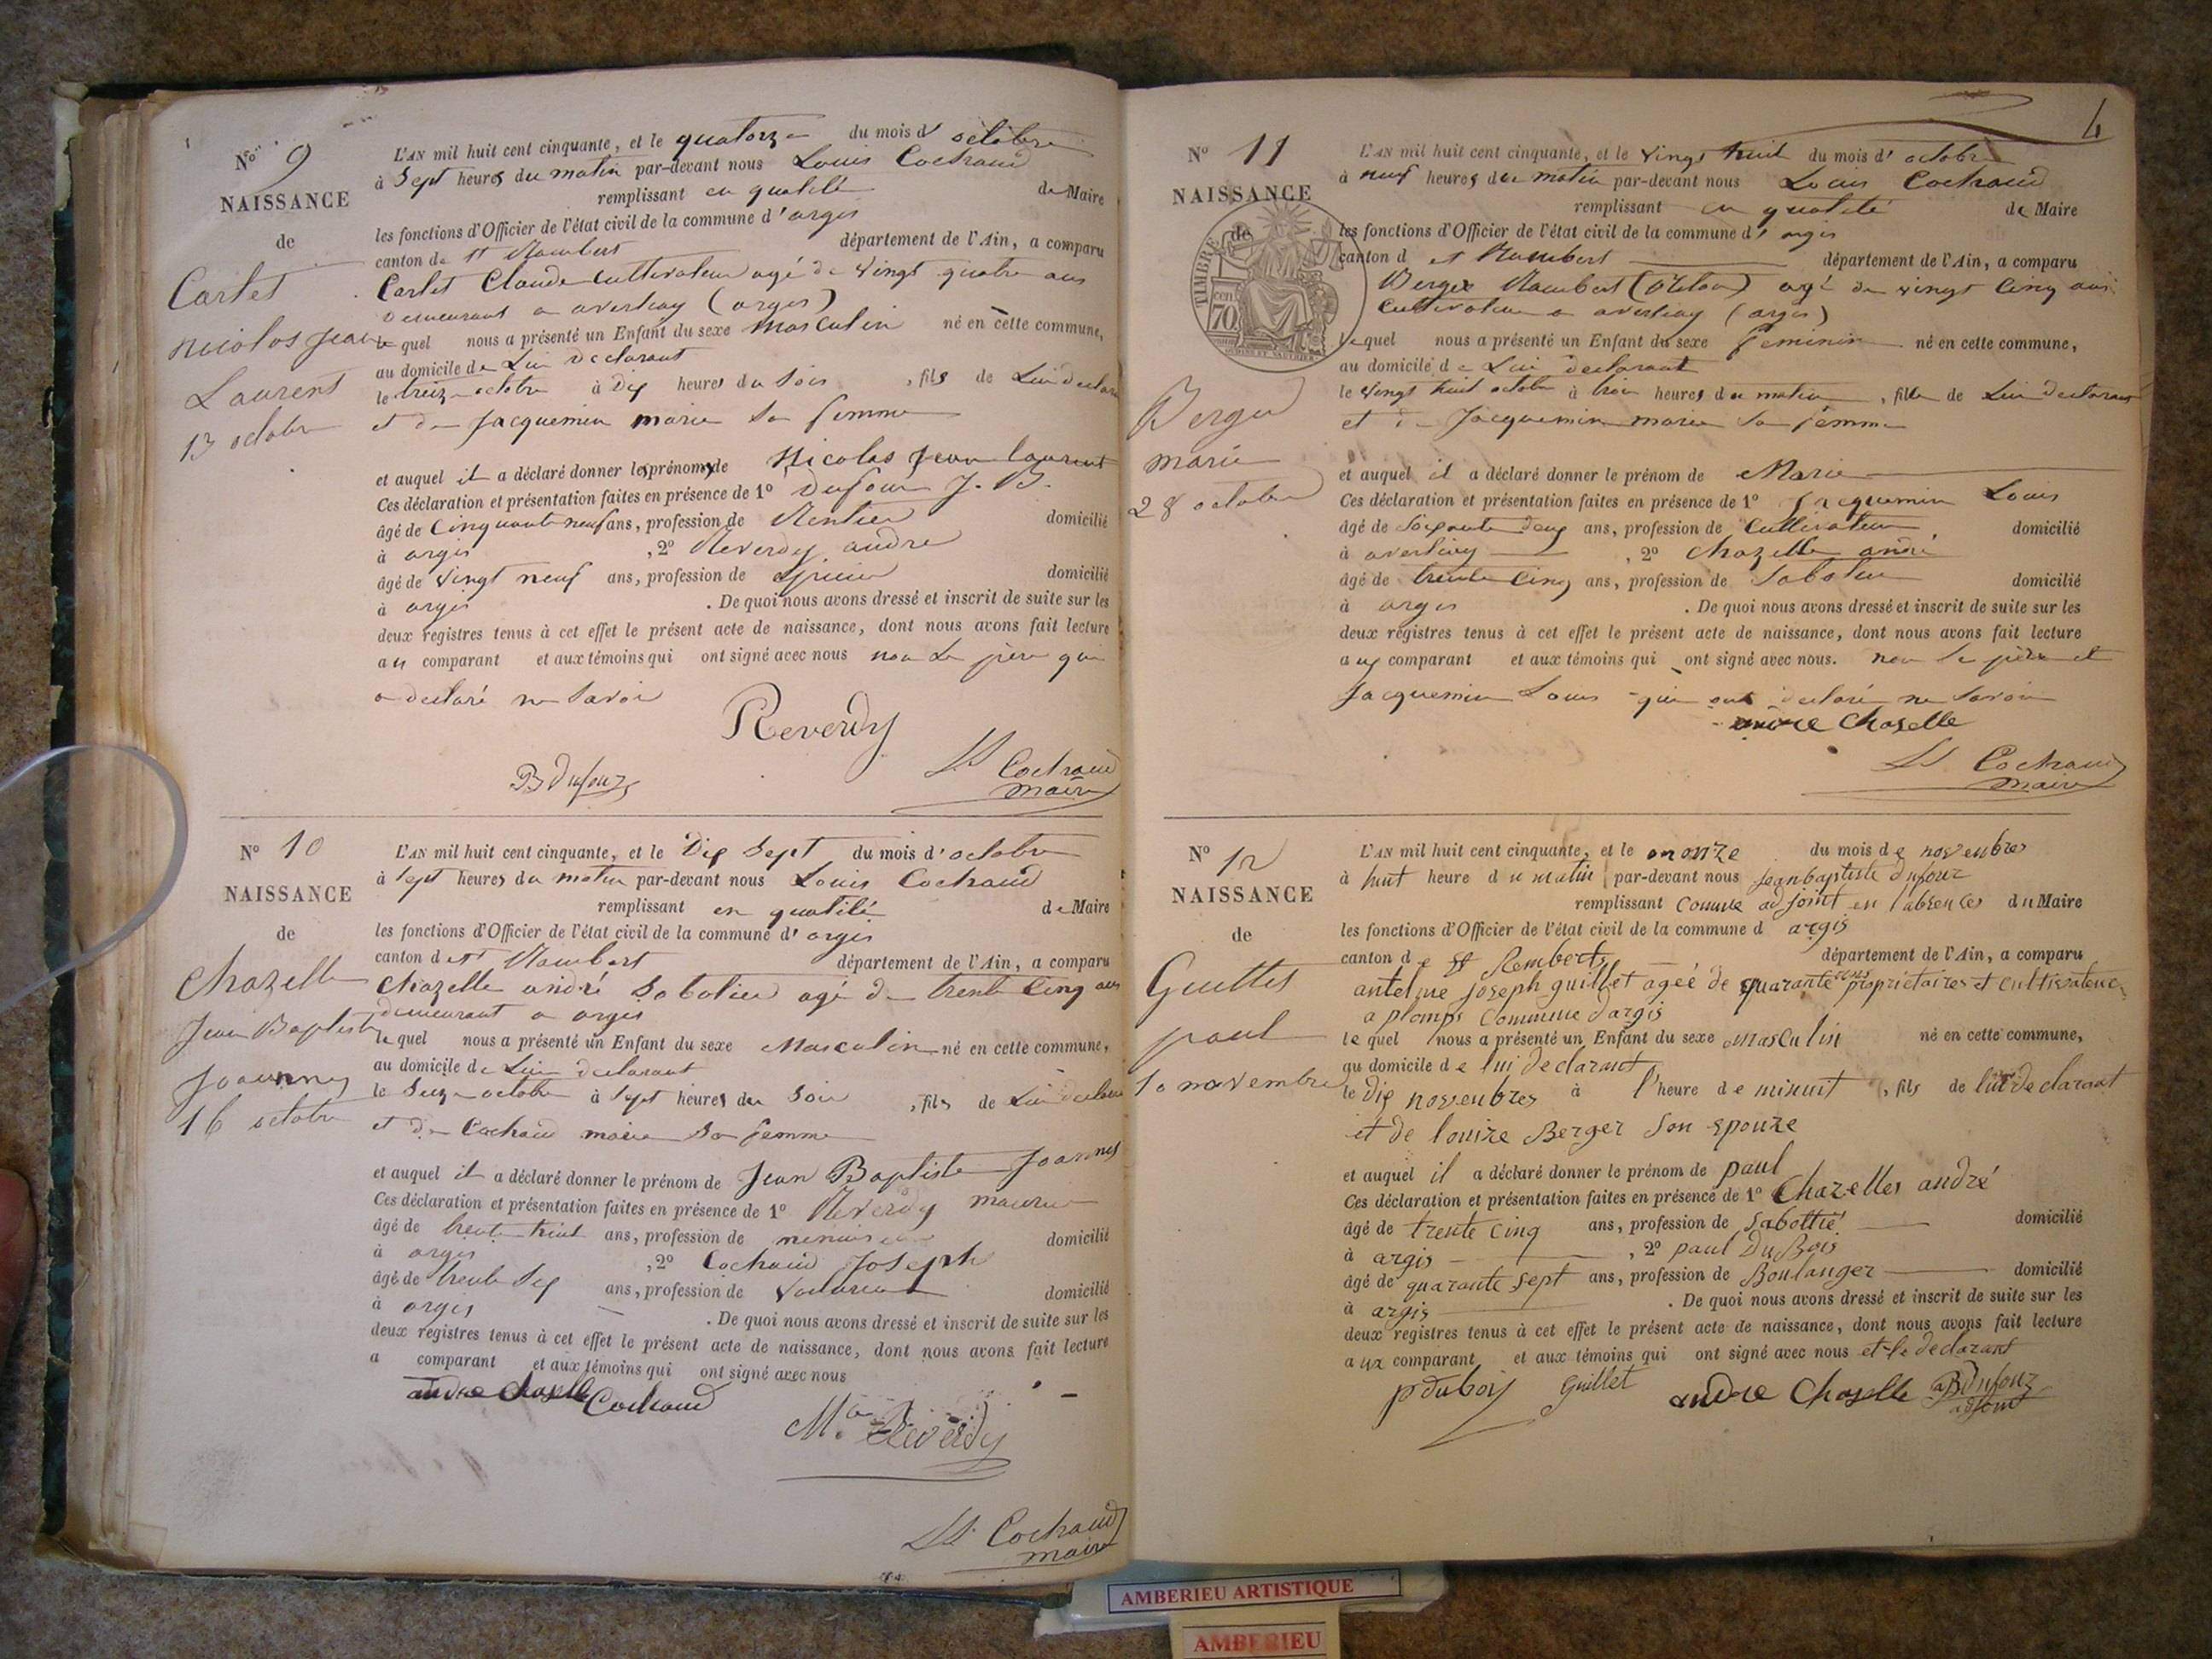 N° 9
NAISSANCE
de
Cartet
Nicolas Jean
Laurent
13 octobre
L'AN mil huit cent cinquante, et le quatorze du mois d' octobre
à Sept heures du matin par-devant nous Louis Cochaud
remplissant en qualité de Maire
les fonctions d'Officier de l'état civil de la commune d'argis
canton de St Rambert département de l'Ain, a comparu
Cartet Claude cultivateur agé de vingt quatre ans
demeurant a averliay (argis)
lequel nous a présenté un Enfant du sexe Masculin né en cette commune,
au domicile de Lui declarant
le treize octobre à dix heures du Soir , fils de Lui declarant
et de Jacquemin marie Sa femme
et auquel il a déclaré donner les prénoms de Nicolas Jean laurent
Ces déclaration et présentation faites en présence de 1° Dufour J. B.
âgé de Cinquante neuf ans, profession de Rentier domicilié
à argis , 2° Reverdy andre
âgé de vingt neuf ans, profession de Epicier domicilié
à argis . De quoi nous avons dressé et inscrit de suite sur les
deux registres tenus à cet effet le présent acte de naissance, dont nous avons fait lecture
au comparant et aux témoins qui ont signé avec nous non le père qui
a declaré ne Savoir
Reverdy
B Dufour
Ls Cochaud
maire
N° 10
NAISSANCE
de
Chazelle
Jean Baptiste
Joannes
16 octobre
L'AN mil huit cent cinquante, et le Dix Sept du mois d'octobre
à Sept heures du matin par-devant nous Louis Cochaud
remplissant en qualité de Maire
les fonctions d'Officier de l'état civil de la commune d'argis
canton de St Rambert département de l'Ain, a comparu
Chazelle andré Sabotier agé de trente Cinq ans
demeurant a argis
lequel nous a présenté un Enfant du sexe Masculin né en cette commune,
au domicile de Lui declarant
le Seize octobre à Sept heures du Soir , fils de Lui declarant
et de Cochaud marie Sa femme
et auquel il a déclaré donner le prénom de Jean Baptiste Joannes
Ces déclaration et présentation faites en présence de 1° Reverdy maurice
âgé de trente huit ans, profession de menuisier domicilié
à argis , 2° Cochaud Joseph
âgé de trente Six ans, profession de domicilié
à argis . De quoi nous avons dressé et inscrit de suite sur les
deux registres tenus à cet effet le présent acte de naissance, dont nous avons fait lecture
a comparant et aux témoins qui ont signé avec nous
andre Chaselle Cochaud
Mce Reverdy
Ls Cochaud
maire
4
N° 11
NAISSANCE
de
TIMBRE
cen
70
Berger
marie
28 octobre
L'AN mil huit cent cinquante, et le vingt huit du mois d' octobre
à neuf heures du matin par-devant nous Louis Cochaud
remplissant en qualité de Maire
les fonctions d'Officier de l'état civil de la commune d' argis
canton d et Rambert département de l'Ain, a comparu
Berger Rambert agé de vingt Cinq ans
Cultivateur a averliay (argis)
lequel nous a présenté un Enfant du sexe feminin né en cette commune,
au domicile de Lui declarant
le vingt huit octobre à trois heures du matin , fille de Lui declarant
et de Jacquemin marie Sa femme
et auquel il a déclaré donner le prénom de Marie
Ces déclaration et présentation faites en présence de 1° Jacquemin Louis
âgé de Soixante deux ans, profession de Cultivateur domicilié
à averliay , 2° Chazelle andré
âgé de trente Cinq ans, profession de Sabotier domicilié
à argis . De quoi nous avons dressé et inscrit de suite sur les
deux registres tenus à cet effet le présent acte de naissance, dont nous avons fait lecture
aux comparant et aux témoins qui ont signé avec nous. non le père et
Jacquemin Louis qui ont declaré ne Savoir
andre Chaselle
Ls Cochaud
maire
N° 12
NAISSANCE
de
Guillet
paul
10 novembre
L'AN mil huit cent cinquante, et le onze du mois de novenbres
à huit heure du matin par-devant nous Jeanbaptiste dufour
remplissant comme adjoint en l'absences du Maire
les fonctions d'Officier de l'état civil de la commune d argis
canton de St Remberts département de l'Ain, a comparu
antelme joseph guillet ageé de quarante ans propriétaires et cultivateur
a plomps Commune d'argis
lequel nous a présenté un Enfant du sexe masculin né en cette commune,
au domicile de lui declarant
le dix novenbres à l'heure de minuit , fils de lui declarant
et de louize Berger Son epouze
et auquel il a déclaré donner le prénom de paul
Ces déclaration et présentation faites en présence de 1° Chazelles andré
âgé de trente cinq ans, profession de Sabottié domicilié
à argis , 2° paul DuBois
âgé de quarante sept ans, profession de Boulanger domicilié
à argis . De quoi nous avons dressé et inscrit de suite sur les
deux registres tenus à cet effet le présent acte de naissance, dont nous avons fait lecture
aux comparant et aux témoins qui ont signé avec nous et le declarant
p duboiy guillet andre Chaselle B Dufour
adjoint
AMBERIEU ARTISTIQUE
AMBERIEU